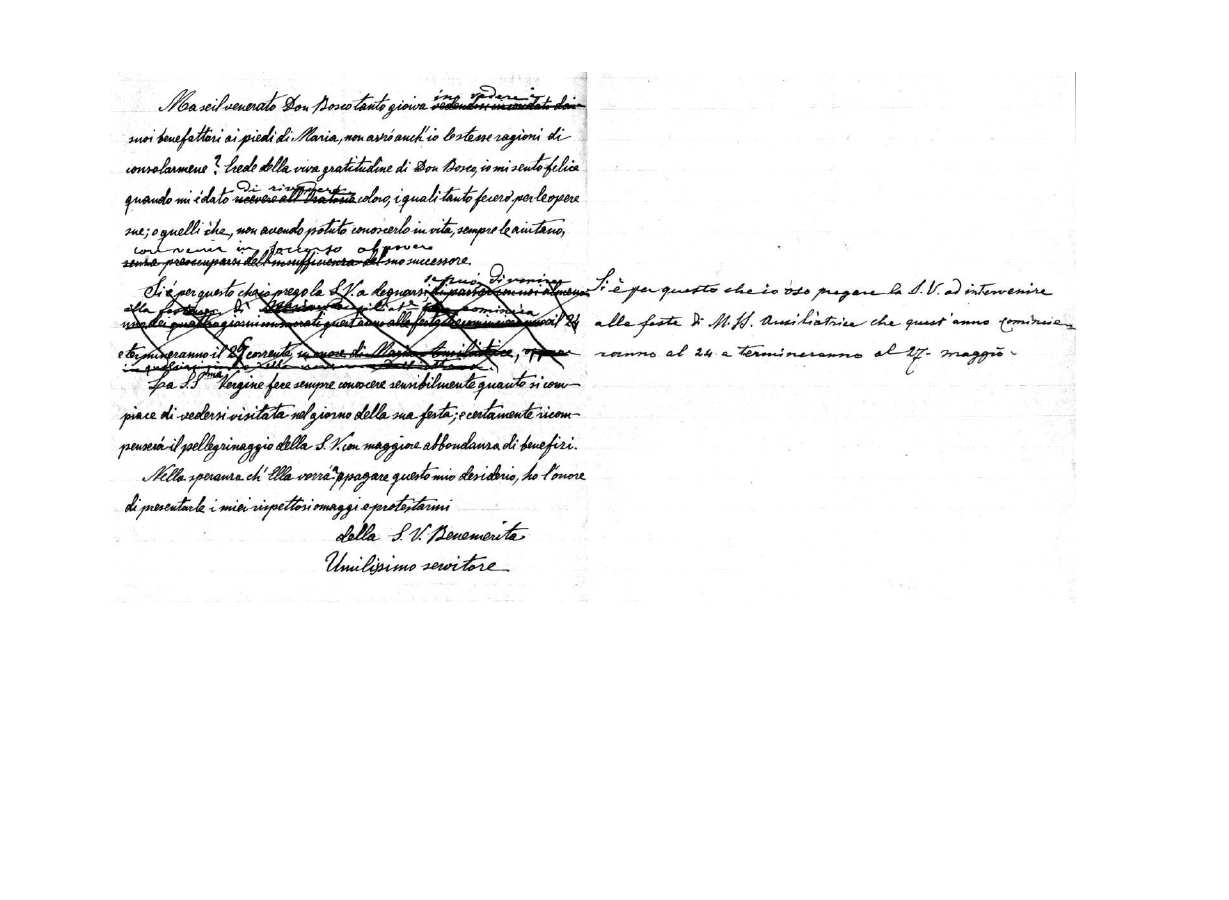 Ma se il venerato Don Bosco tanto gioiva
in vedere i
suoi benefattori ai piedi di Maria, non avrò anch'io le stesse ragioni di
consolarmene? Erede della viva gratitudine di Don Bosco, io mi sento felice
di
quando mi è dato ricevere all'Oratorio coloro, i quali tanto fecero per le opere
sue; o quelli che, non avendo potuto conoscerlo in vita, sempre le aiutano,
con venir in soccorso al povero
senza preoccuparsi dell'insufficienza del suo successore.
Si è per questo ch'io prego la S. V. a degnarsi di passare con noi almeno
alla festa di
uno dei quattro giorni consecrati quest'anno alla festa, che cominciano il 24
e termineranno il 27 corrente, in onore di Maria Ausiliatrice,
La S.S.ma Vergine fece sempre conoscere sensibilmente quanto si com-
piace di vedersi visitata nel giorno della sua festa; e certamente ricom-
penserà il pellegrinaggio della S. V. con maggiore abbondanza di benefizi.
Nella speranza ch'Ella vorrà appagare questo mio desiderio, ho l'onore
di presentarle i miei rispettosi omaggi e protestarmi
della S. V. Benemerita
Umilissimo servitore
Si è per questo che io oso pregare la S. V. ad intervenire
alla feste di M. SS. Ausiliatrice che quest'anno comincie-
ranno al 24 e termineranno al 27 - maggio -